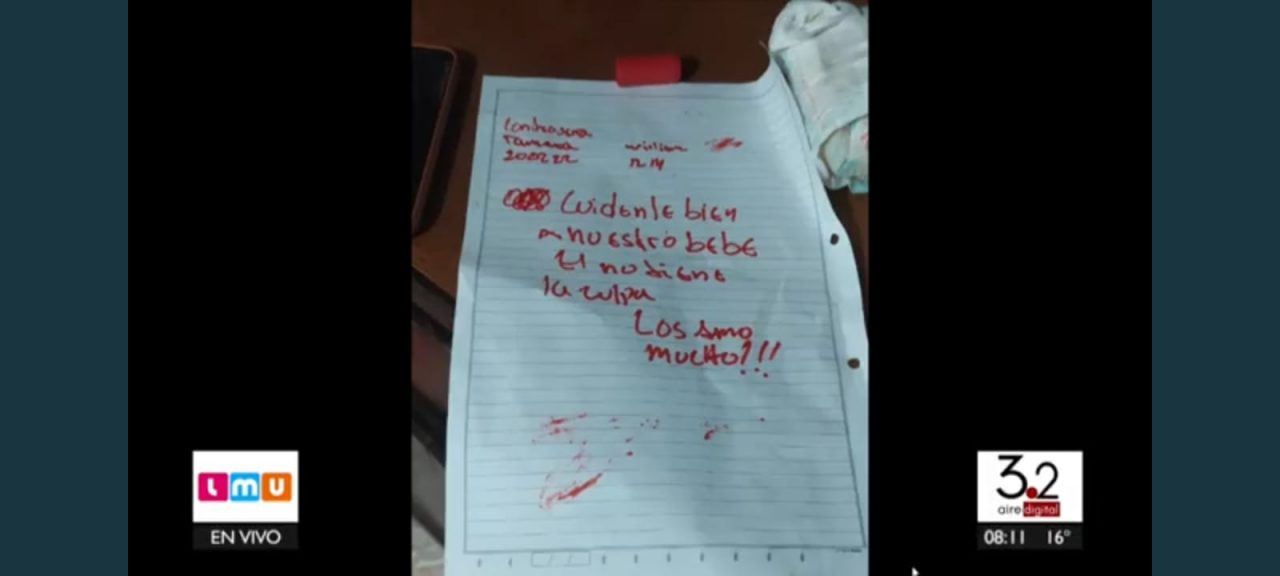 Contrasena
Tamara
200222
William
12 14
Cuidenle bien
a nuestro bebe
El no tiene
la culpa
Los amo
mucho!!!
lmu
EN VIVO
3.2
aire digital
08:11 16°